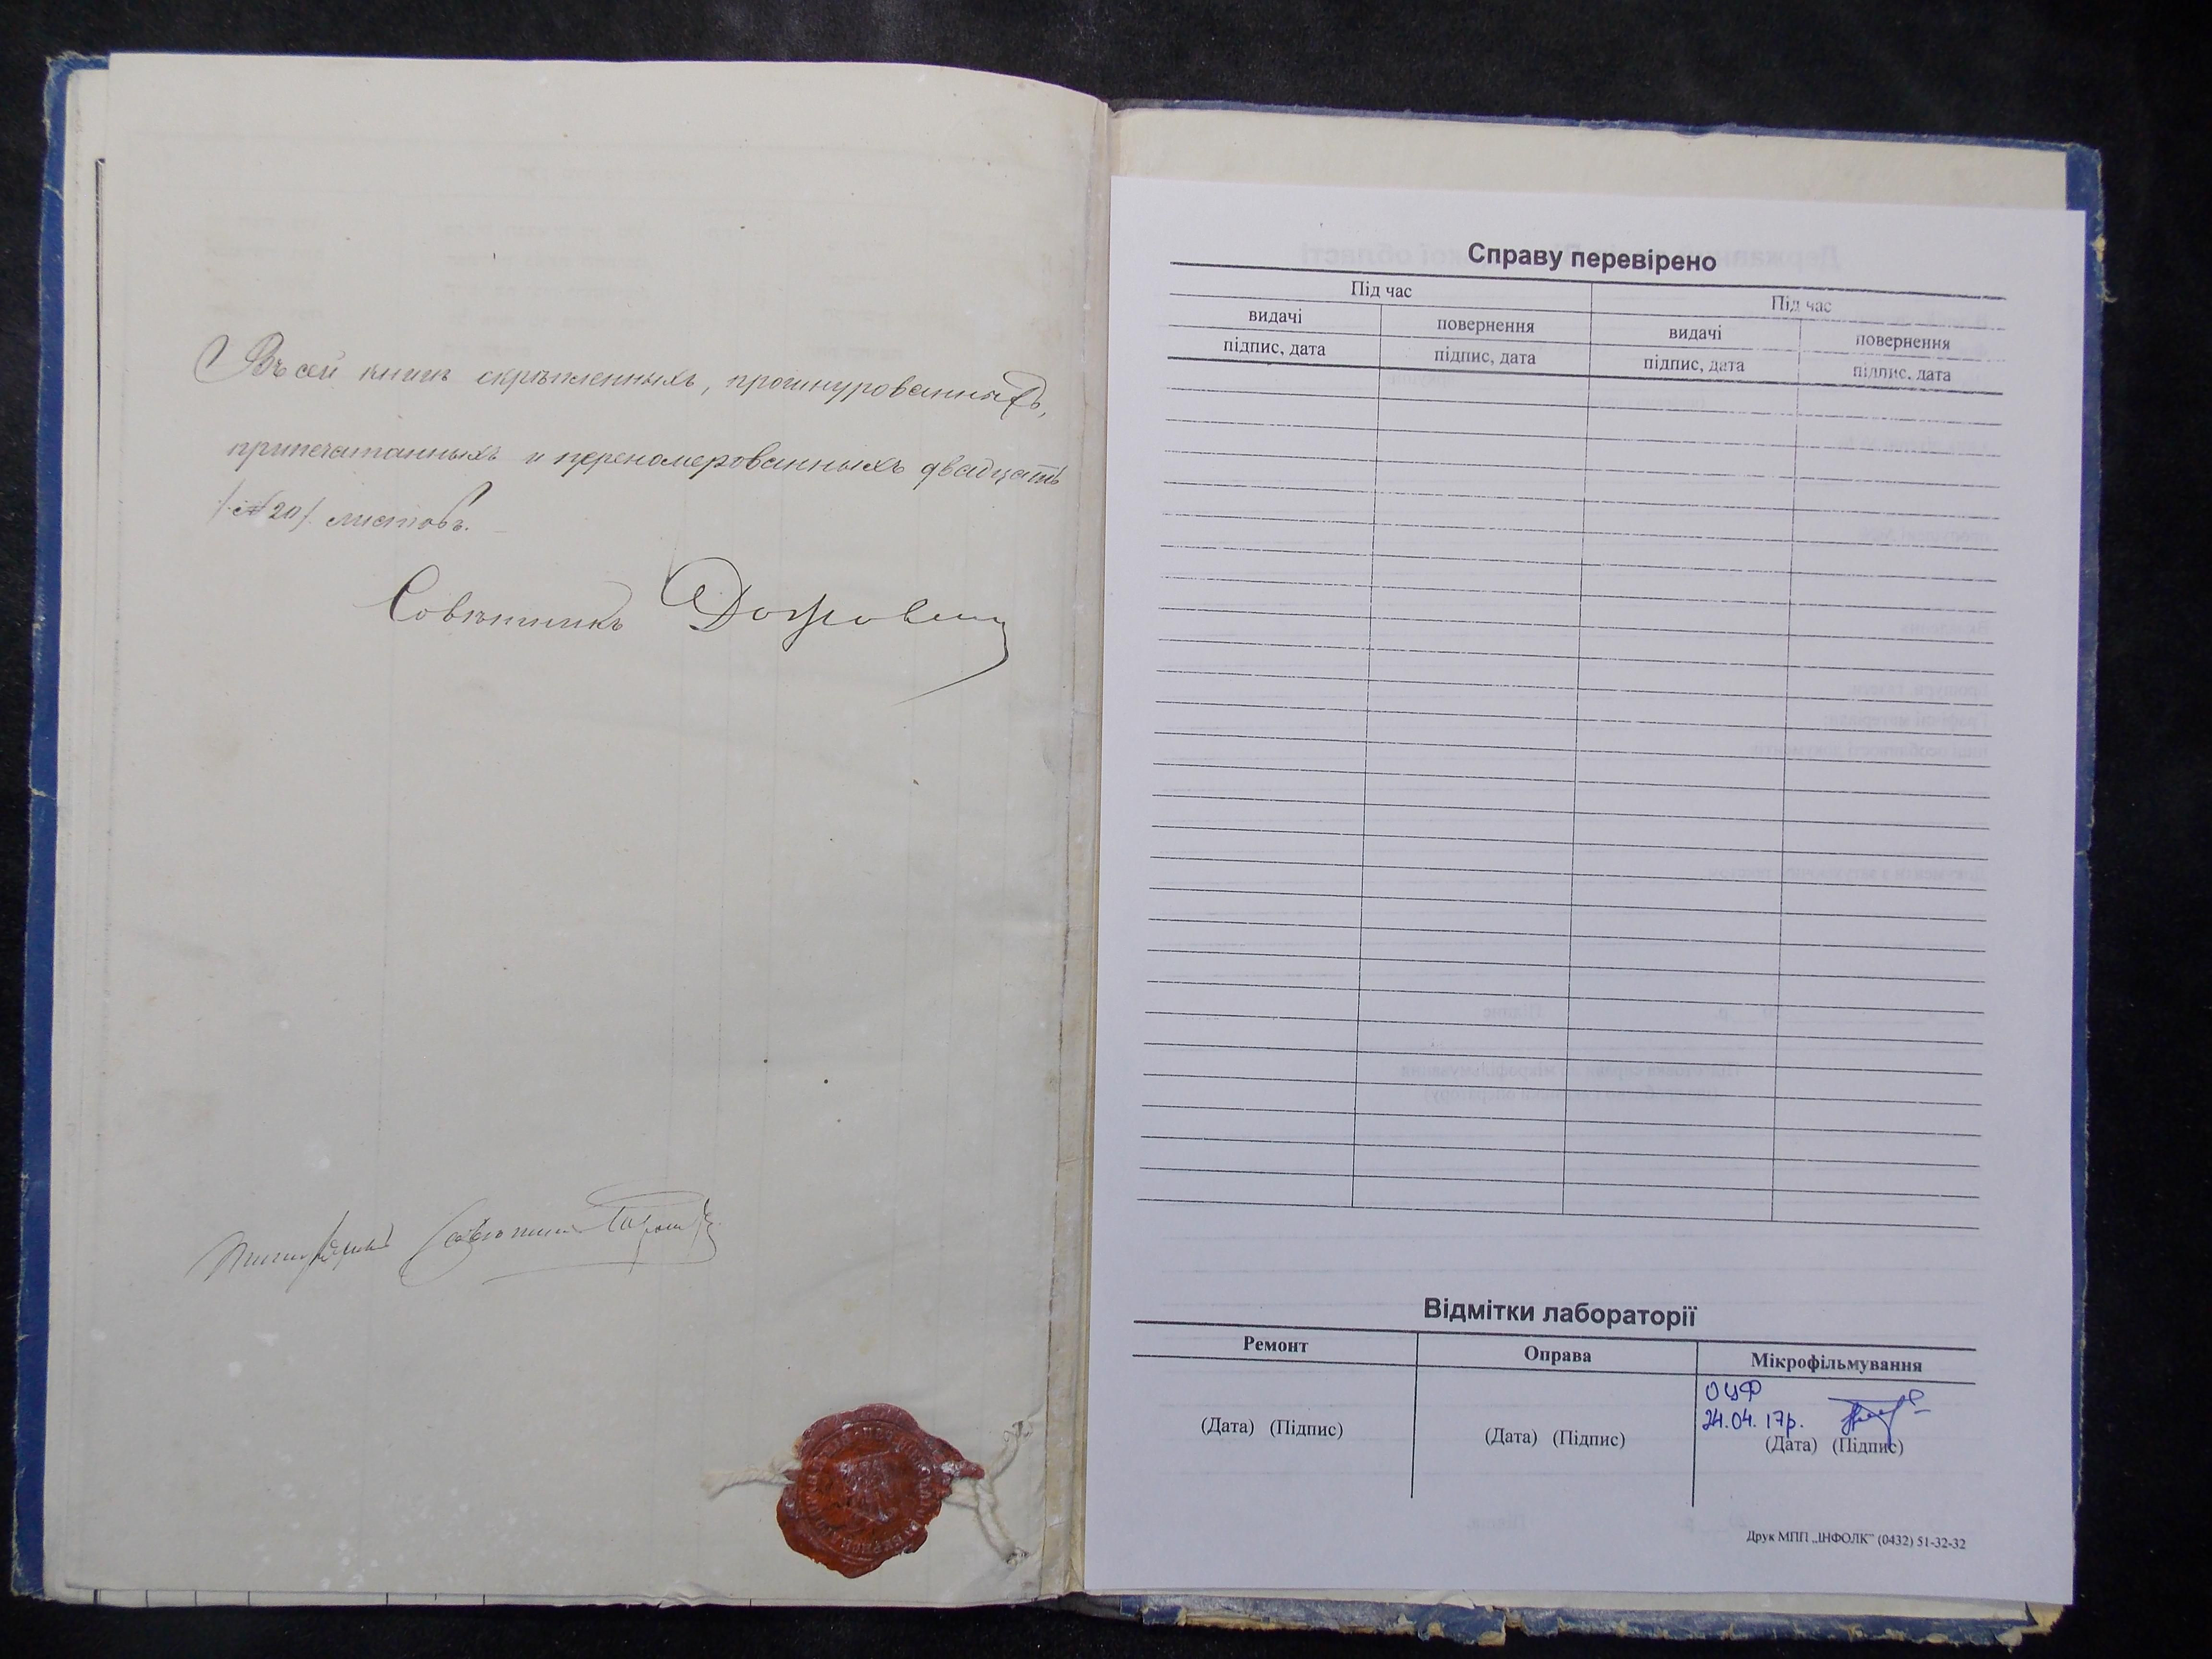 Въ сей книгѣ скрѣпленныхъ, прошнурованныхъ,
припечатанныхъ и переномерованныхъ двадцать
/№ 20/ листовъ.
Совѣтникъ
Справу перевірено
Під час Під час
видачі повернення видачі повернення
підпис, дата підпис, дата підпис, дата підпис, дата
Відмітки лабораторії
Ремонт Оправа Мікрофільмування
ОЦФ
24.04.17р.
(Дата) (Підпис) (Дата) (Підпис) (Дата) (Підпис)
Друк МПП „ІНФОЛК” (0432) 51-32-32